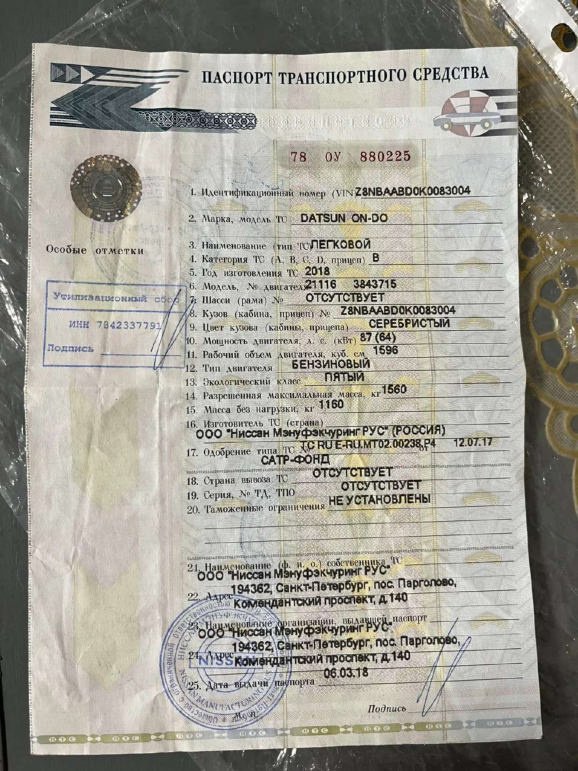 ПАСПОРТ ТРАНСПОРТНОГО СРЕДСТВА
78 ОУ 880225
1. Идентификационный номер (VIN) Z8NBAABD0K0083004
2. Марка, модель ТС DATSUN ON-DO
Особые отметки
3. Наименование (тип ТС) ЛЕГКОВОЙ
4. Категория ТС (А, В, С, D, прицеп) B
5. Год изготовления ТС 2018
6. Модель, № двигателя 21116 3843715
7. Шасси (рама) № ОТСУТСТВУЕТ
8. Кузов (кабина, прицеп) № Z8NBAABD0K0083004
9. Цвет кузова (кабины, прицепа) СЕРЕБРИСТЫЙ
10. Мощность двигателя, л. с. (кВт) 87 (64)
11. Рабочий объем двигателя, куб. см 1596
12. Тип двигателя БЕНЗИНОВЫЙ
13. Экологический класс ПЯТЫЙ
14. Разрешенная максимальная масса, кг 1560
15. Масса без нагрузки, кг 1160
16. Изготовитель ТС (страна)
ООО "Ниссан Мэнуфэкчуринг РУС" (РОССИЯ)
17. Одобрение типа ТС № ТС RU E-RU.MT02.00238.P4 от 12.07.17
САТР-ФОНД
18. Страна вывоза ТС ОТСУТСТВУЕТ
19. Серия, № ТД, ТПО ОТСУТСТВУЕТ
20. Таможенные ограничения НЕ УСТАНОВЛЕНЫ
Утилизационный сбор
ИНН 7842337791
Подпись
21. Наименование (ф. и. о.) собственника ТС
ООО "Ниссан Мэнуфэкчуринг РУС"
22. Адрес 194362, Санкт-Петербург, пос. Парголово,
Комендантский проспект, д.140
23. Наименование организации, выдавшей паспорт
ООО "Ниссан Мэнуфэкчуринг РУС"
24. Адрес 194362, Санкт-Петербург, пос. Парголово,
Комендантский проспект, д.140
25. Дата выдачи паспорта 06.03.18
М. П.
Подпись